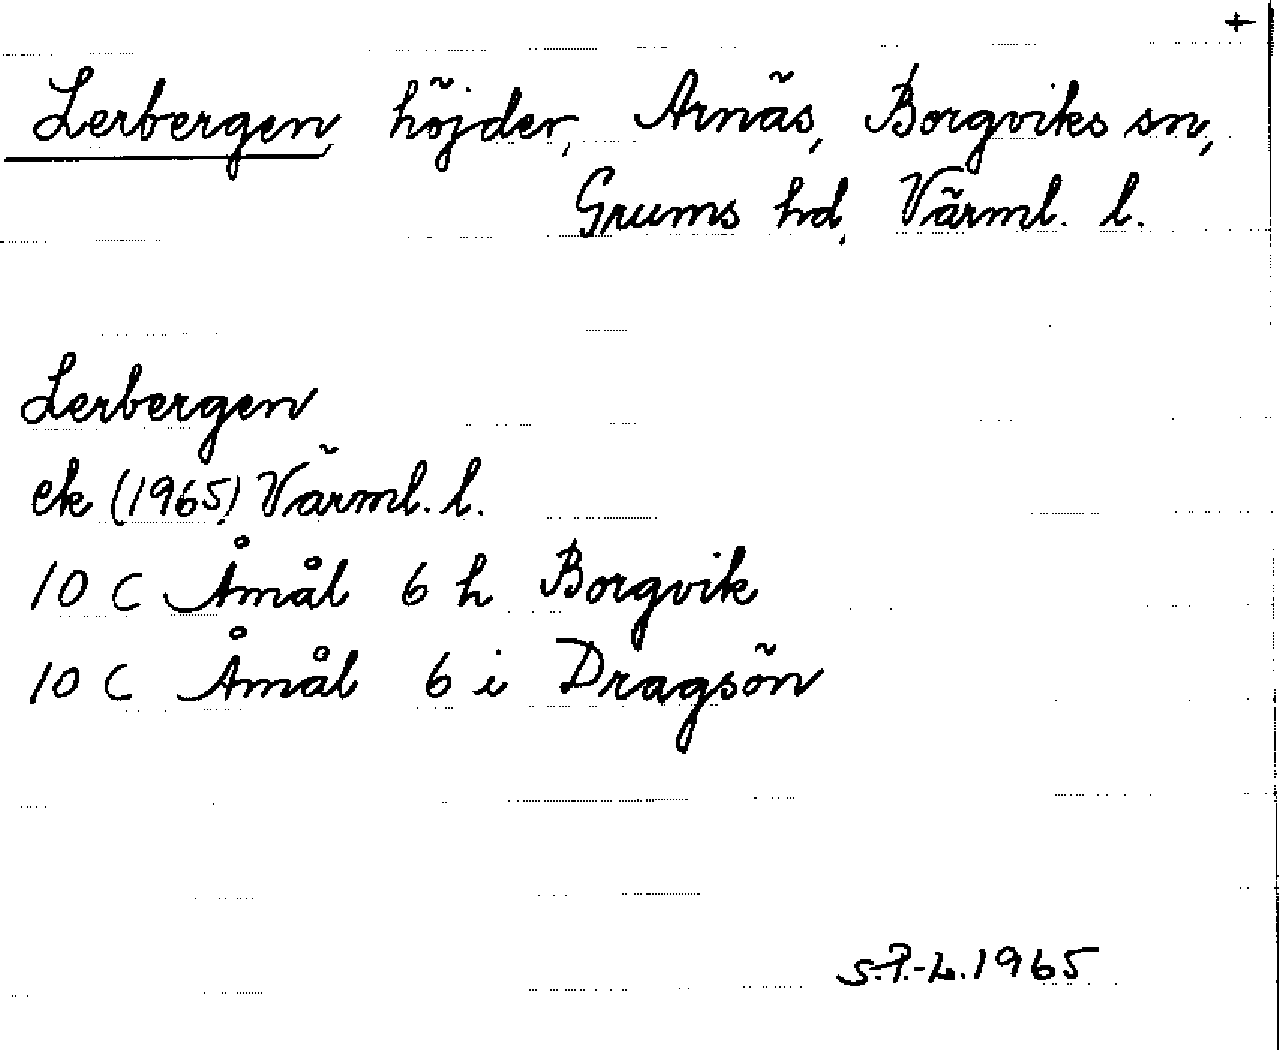 +
Lerbergen höjder, Arnäs, Borgviks sn,
Grums hd, Värml. l.
Lerbergen
ek (1965) Värml. l.
10 C Åmål 6 h Borgvik
10 C Åmål 6 i Dragsön
S.P.-L. 1965